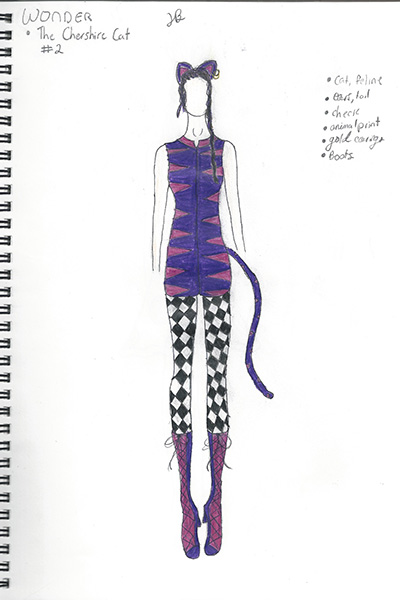 WONDER
• The Chershire Cat
#2
JB
• cat, feline
• ears, tail
• check
• animal print
• gold earrings
• Boots